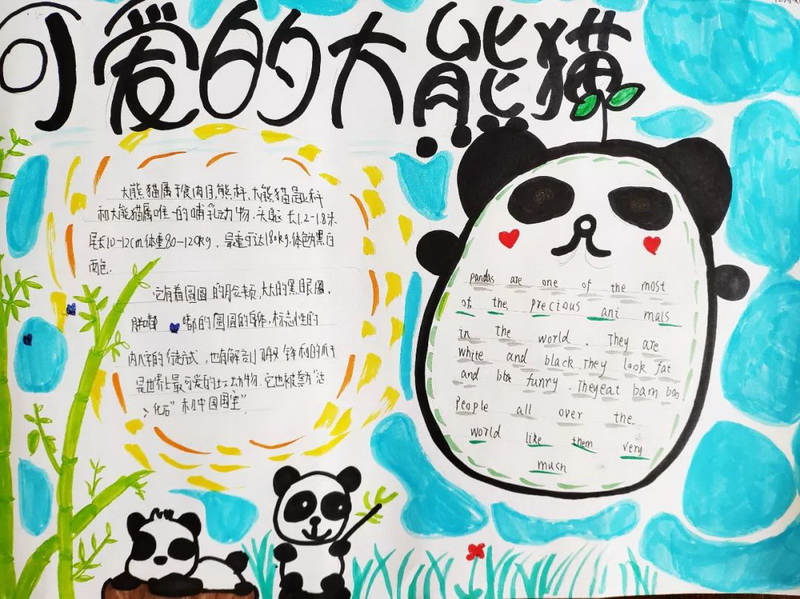 可爱的大熊猫
大熊猫属于食肉目,熊科、大熊猫亚科
和大熊猫属唯一的哺乳动物.头躯长1.2-1.8米
尾长10-12cm.体重80-120kg.最重可达180kg.体色为黑白
两色.
它有着圆圆的脸颊,大大的黑眼圈.
胖嘟嘟的圆圆的身体.标志性的
内八字的行走方式,也有解剖刀般锋利的爪子
是世界上最可爱的动物.它也被誉为"活
化石"和中国国宝"
pandas are one of the most
of the precious ani mals
in the world . They are
white and black .They look fat
and funny Theyeat bam boo
People all over the
world like them very
much